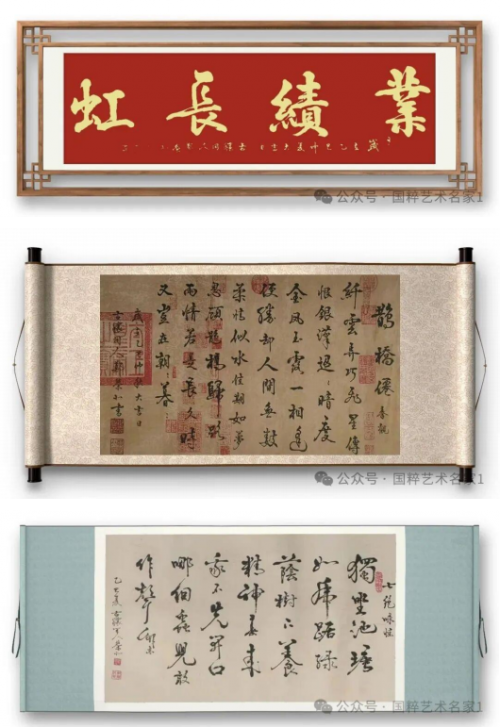 業績長虹
公众号·国粹艺术名家1
鵲橋僊 秦觀
纖雲弄巧飛星傳
恨銀漢迢迢暗度
金風玉露一相逢
便勝却人間無數
柔情似水佳期如夢
忍顧鵲橋歸路
兩情若是長久時
又豈在朝朝暮暮
公众号·国粹艺术名家1
七絕 詠蛙
獨坐池塘
如虎踞綠
蔭樹下養
精神春來
我不先開口
哪個蟲兒敢
作聲
公众号·国粹艺术名家1